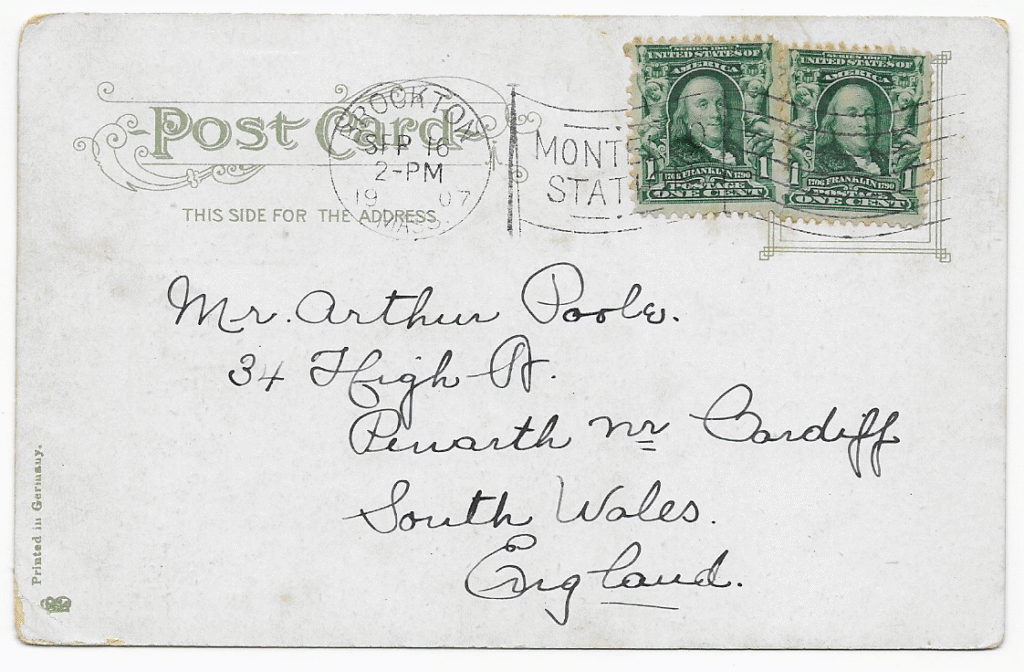 Post Card
THIS SIDE FOR THE ADDRESS.
BROCKTON
SEP 16
2-PM
1907
MASS.
MONT
STAT
SERIES 1902
UNITED STATES OF
AMERICA
1 1
1706 FRANKLIN 1790
POSTAGE
ONE CENT
SERIES 1902
UNITED STATES OF
AMERICA
1 1
1706 FRANKLIN 1790
POSTAGE
ONE CENT
Mr. Arthur Poole.
34 High St.
Penarth nr Cardiff
South Wales.
England.
Printed in Germany.